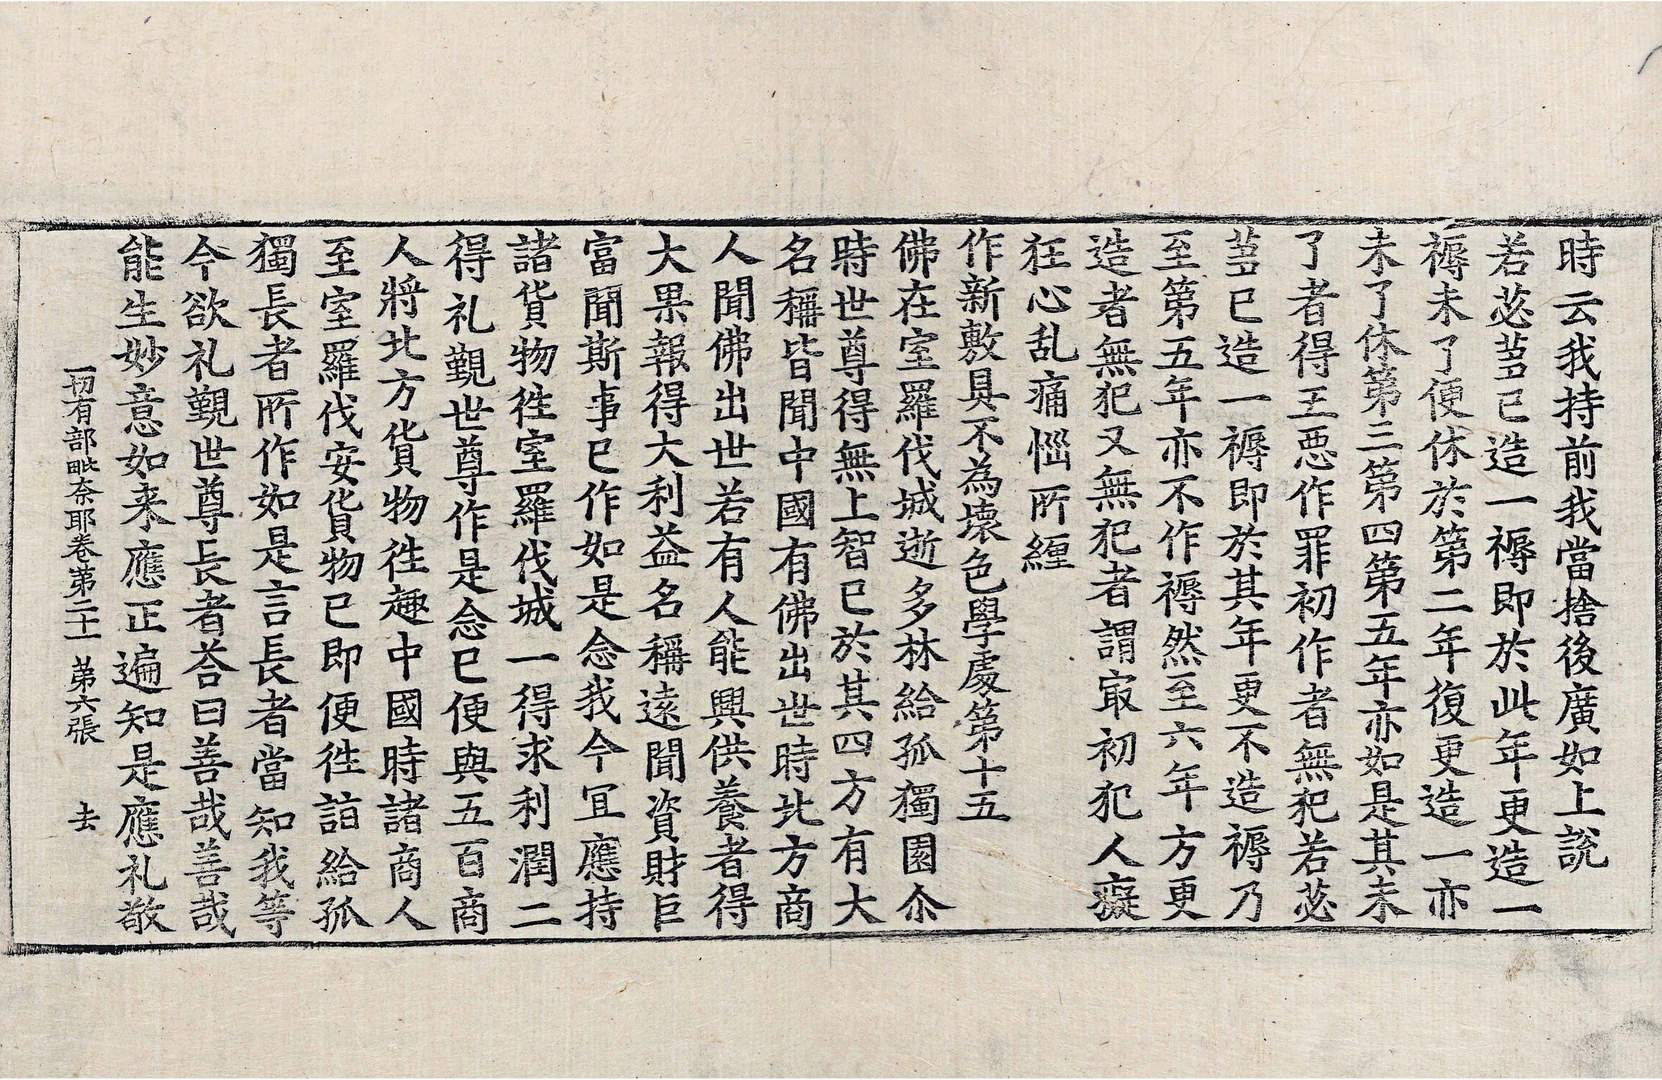 時云我持前我當捨後廣如上說
若苾蒭已造一褥即於此年更造一
褥未了便休於第二年復更造一亦
未了休第三第四第五年亦如是其未
了者得王惡作罪初作者無犯若苾
蒭已造一褥即於其年更不造褥乃
至第五年亦不作褥然至六年方更
造者無犯又無犯者謂㝡初犯人癡
狂心乱痛惱所纏
作新敷具不為壞色學處第十五
佛在室羅伐城逝多林給孤獨園尒
時世尊得無上智已於其四方有大
名稱皆聞中國有佛出世時北方商
人聞佛出世若有人能興供養者得
大果報得大利益名稱遠聞資財巨
富聞斯事已作如是念我今宜應持
諸貨物往室羅伐城一得求利潤二
得礼覲世尊作是念已便與五百商
人將北方貨物往趣中國時諸商人
至室羅伐安貨物已即便往詣給孤
獨長者所作如是言長者當知我等
今欲礼覲世尊長者荅曰善哉善哉
能生妙意如来應正遍知是應礼敬
一切有部毗奈耶卷第二十一 第六張 去